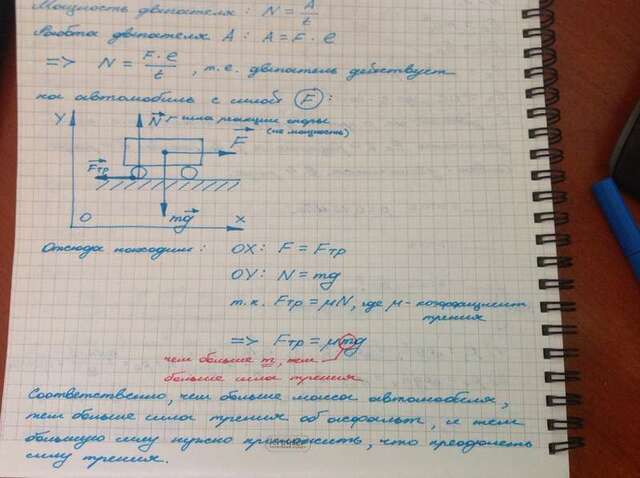 Мощность двигателя: N = A/t
Работа двигателя A: A = F · l
=> N = F·l/t, т.е. двигатель действует
на автомобиль с силой F:
Y
N - сила реакции опоры
(не мощность)
F
Fтр
mg
O
X
Отсюда находим: OX: F = Fтр
OY: N = mg
т.к. Fтр = μN, где μ - коэффициент
трения
=> Fтр = μmg
чем больше m, тем
больше сила трения
Соответственно, чем больше масса автомобиля,
тем больше сила трения об асфальт, и тем
большую силу нужно приложить, что преодолеть
силу трения.